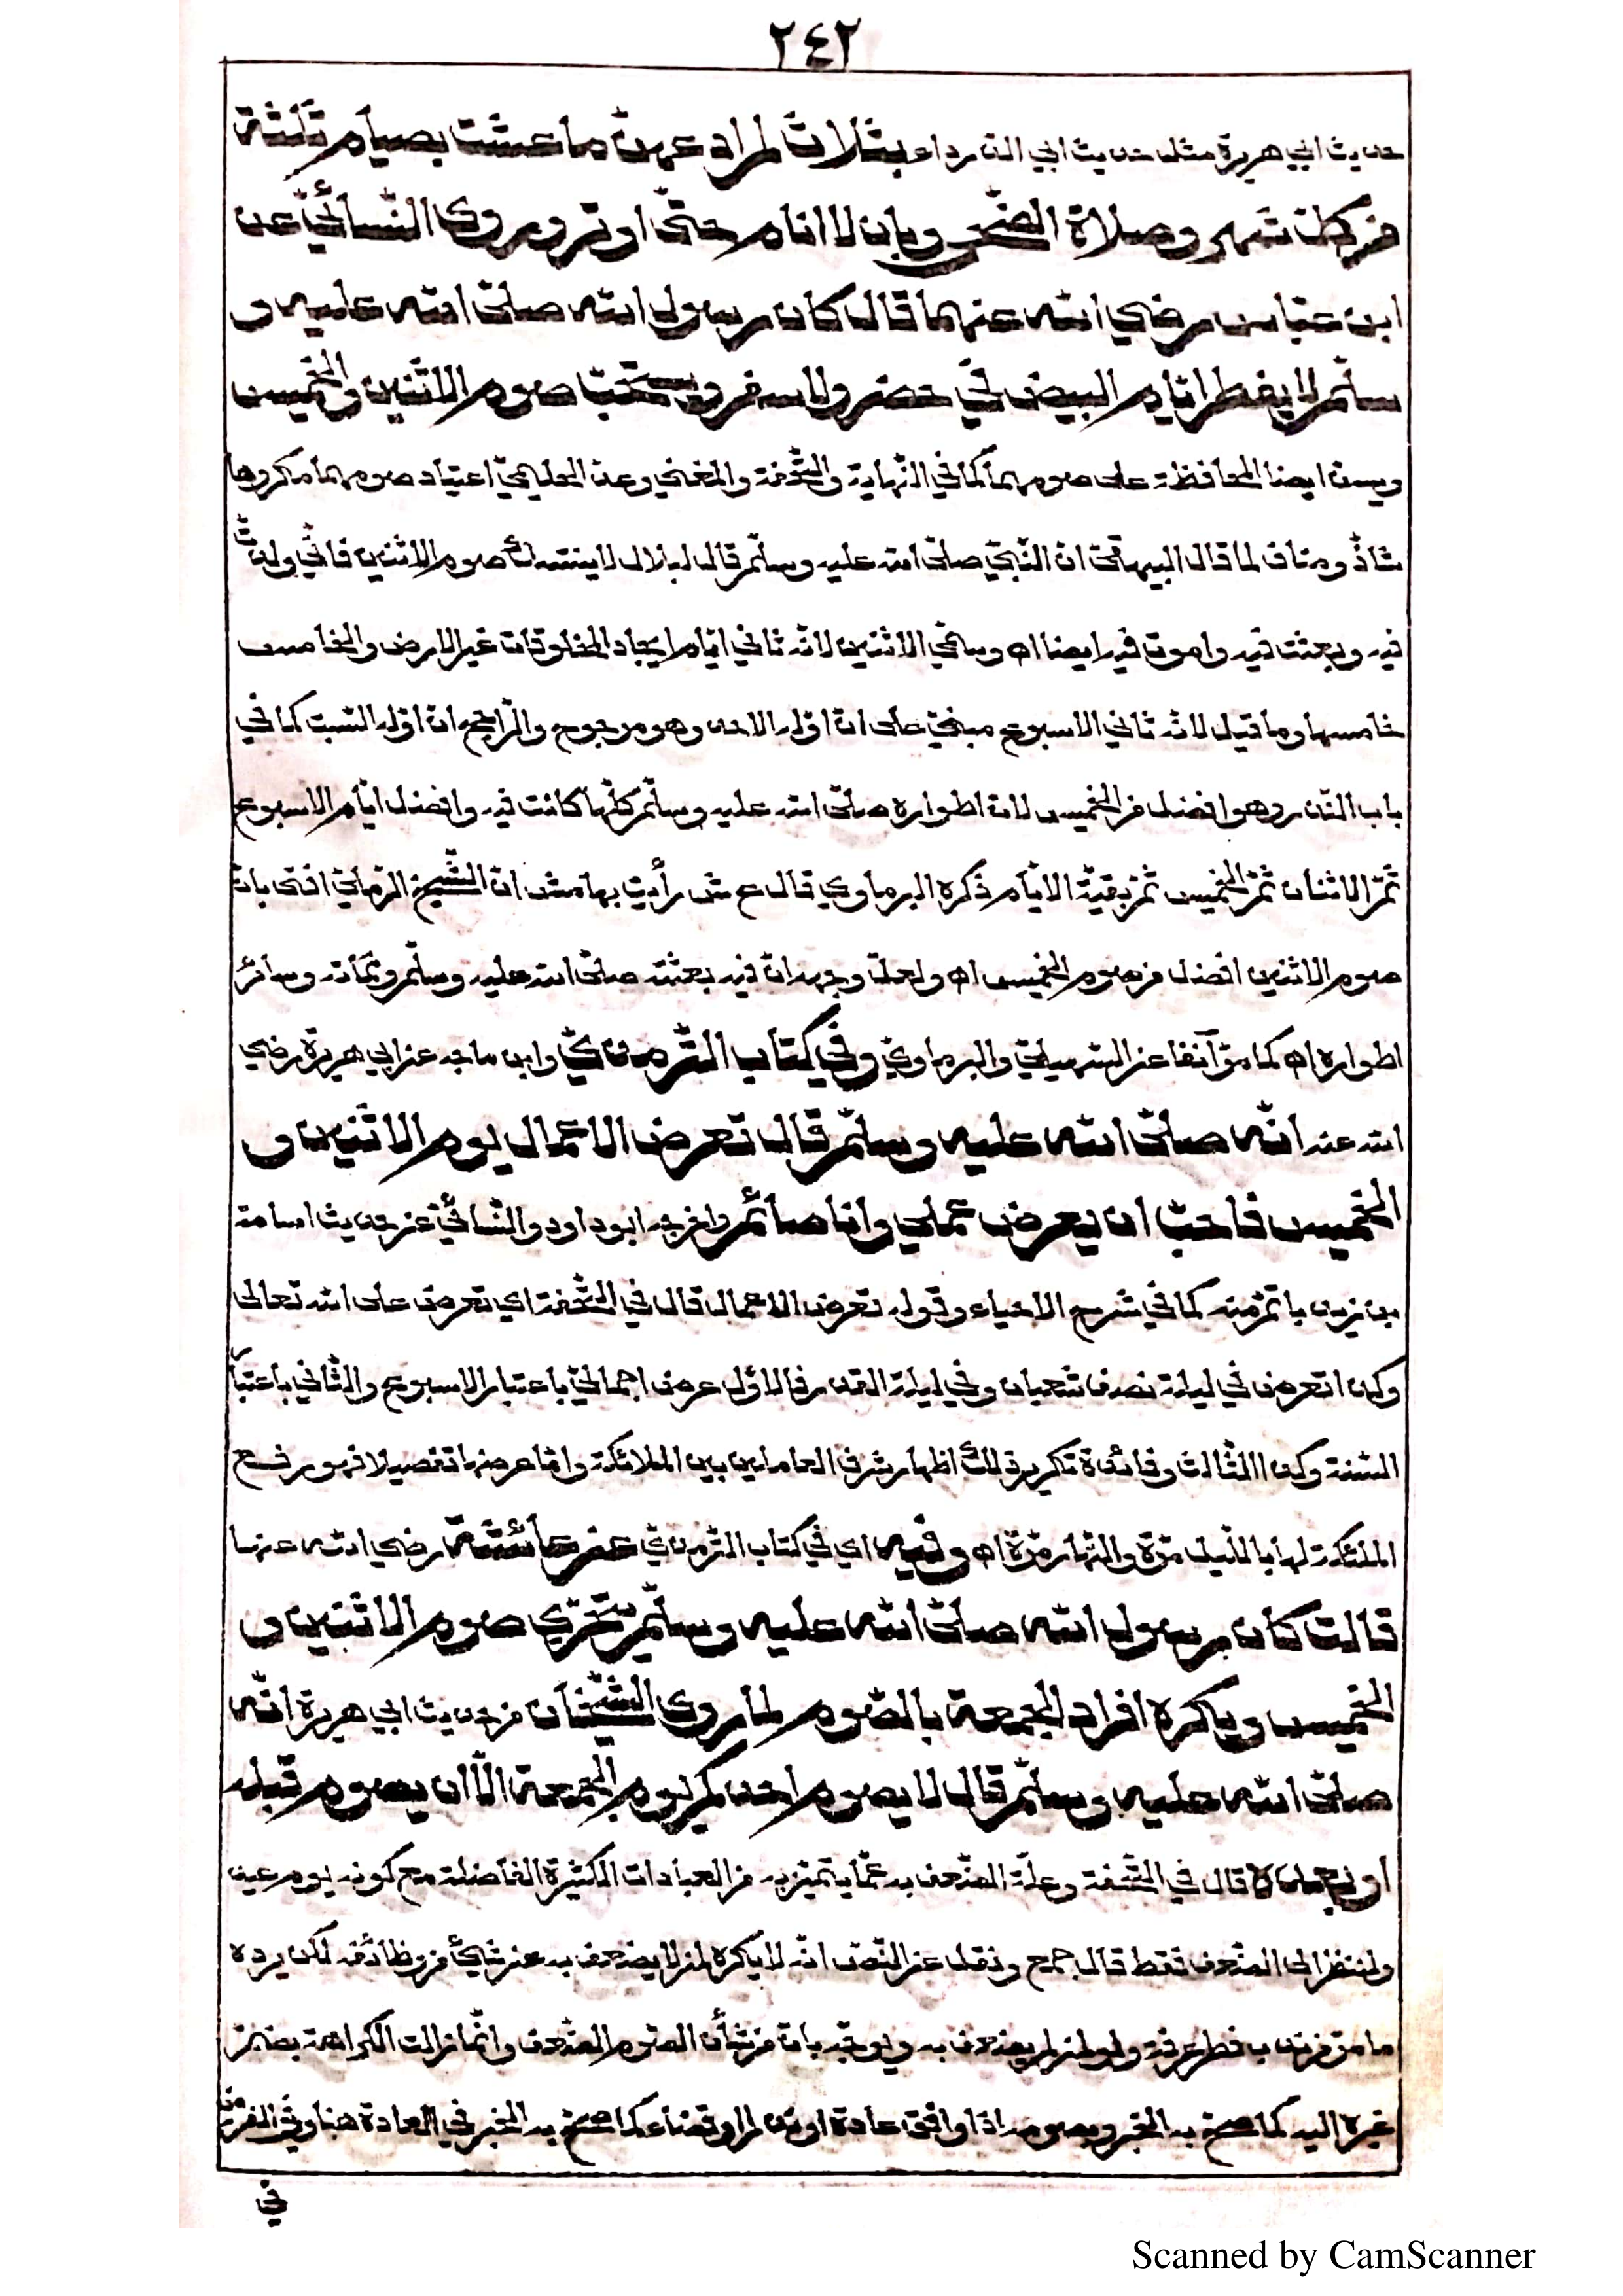 ٢٤٢
حديث ابي هريرة مثل حديث ابي الدرداء بثلاث لم ادعهن ما عشت بصيام ثلثة
من كل شهر وصلاة الضحى وبان لا انام حتى اوتر وروى النسائي عن
ابن عباس رضي الله عنهما قال كان رسول الله صلى الله عليه و
سلم لا يفطر ايام البيض في حضر ولا سفر ويستحب صوم الاثنين والخميس
ويسن ايضا المحافظة على صومهما كما في النهاية والتحفة والمغني وعد الحليمي اعتياد صومهما مكروها
شاذ ومناف لما قال البيهقي ان النبي صلى الله عليه وسلم قال لبلال لا ينتدلك صوم الاثنين فاني ولدت
فيه وبعثت فيه واموت فيه ايضا اه وسمي الاثنين لانه ثاني ايام ايجاد المخلوقات غير الارض والخامس
خامسها وما قيل لانه ثاني الاسبوع مبني على ان اوله الاحد وهو مرجوح والراجح ان اوله السبت كما في
باب النذر وهو افضل من الخميس لان اطواره صلى الله عليه وسلم كلها كانت فيه وافضل ايام الاسبوع
ثم الاثنان ثم الخميس ثم بقية الايام ذكره البرماوي قال ع ش رأيت بهامش ان الشيخ الرملي افتى بان
صوم الاثنين افضل من صوم الخميس اه ولعل وجهه ان فيه بعثته صلى الله عليه وسلم ومماته وسائر
اطواره اه كما مر آنفا عن السهيلي والبرماوي وفي كتاب الترمذي وابن ماجه عن ابي هريرة رضي
الله عنه انه صلى الله عليه وسلم قال تعرض الاعمال يوم الاثنين و
الخميس فاحب ان يعرض عملي وانا صائم واخرجه ابو داود والنسائي من حديث اسامة
بن زيد باتم منه كما في شرح الاحياء وقوله تعرض الاعمال قال في التحفة اي تعرض على الله تعالى
وكذا تعرض في ليلة نصف شعبان وفي ليلة القدر فالاول عرض اجمالي باعتبار الاسبوع والثاني باعتبار
السنة وكذا الثالث وفائدة تكرير ذلك اظهار شرف العاملين بين الملائكة واما عرضها تفصيلا فهو رفع
الملئكة لها بالليل مرة والنهار مرة اه وفيه اي في كتاب الترمذي عن عائشة رضي الله عنها
قالت كان رسول الله صلى الله عليه وسلم يتحرى صوم الاثنين و
الخميس ويكره افراد الجمعة بالصوم لما روى الشيخان من حديث ابي هريرة انه
صلى الله عليه وسلم قال لا يصوم احدكم يوم الجمعة الا ان يصوم قبله
او بعده قال في التحفة وعلة الضعف به عما يتميز به من العبادات الكثيرة الفاضلة مع كونه يوم عيد
ولم ينظر الى الضعف فقط قال جمع ونقل عن النص انه لا يكره لمن لا يضعف به عن شيء من وظائفه لكن يرده
ما مر من ندب فطر عرفة ولو لمن لم يضعف به ويوجه بان من شأن الصوم الضعف وانما زالت الكراهة بضم
غيره اليه كما صح به الخبر وبصومه اذا وافق عادة او نذرا او قضاء كما صح به الخبر في العادة هنا وفي الفرض
في
Scanned by CamScanner